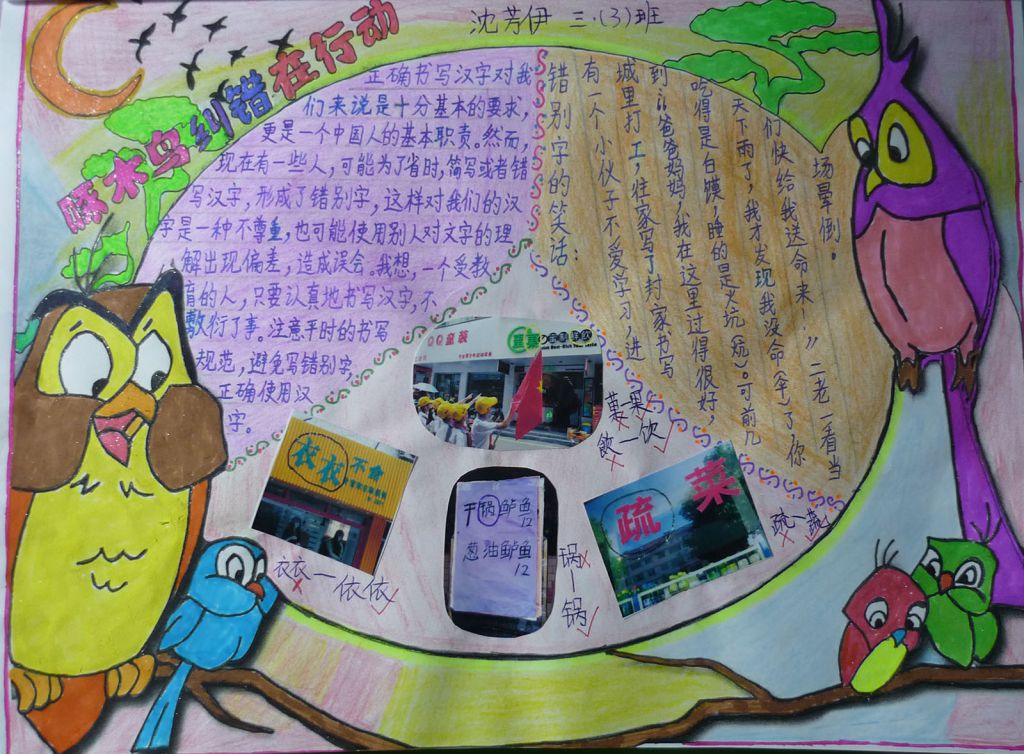 沈芳伊 三.(3)班
啄木鸟纠错在行动
正确书写汉字对我
们来说是十分基本的要求,
更是一个中国人的基本职责。然而,
现在有一些人,可能为了省时,简写或者错
写汉字,形成了错别字,这样对我们的汉
字是一种不尊重,也可能使用别人对文字的理
解出现偏差,造成误会。我想,一个受教
育的人,只要认真地书写汉字,不
敷衍了事。注意平时的书写
规范,避免写错别字,
正确使用汉
字。
错别字的笑话:
有一个小伙子不爱学习,进
城里打工,往家写了封家书写
到:“爸爸妈妈,我在这里过得很好,
吃得是白馍,睡的是火坑(炕)。可前几
天下雨了,我才发现我没命(伞)了你
们快给我送命来!”二老一看当
场晕倒。
童装
菓—果
飲—饮
衣衣不舍
衣衣—依依
干锅鲈鱼
12
葱油鲈鱼
12
锅
锅
疏菜
疏—蔬